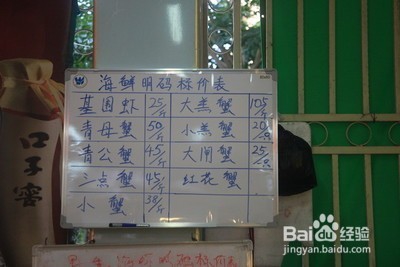 海鲜明码标价表
基围虾 25/斤 大羔蟹 105/斤
青母蟹 50/斤 小羔蟹 20/只
青公蟹 45/斤 大闸蟹 25/只
三点蟹 45/斤 红花蟹
小蟹 38/斤
口子窖
Baidu经验
jingyan.baidu.com